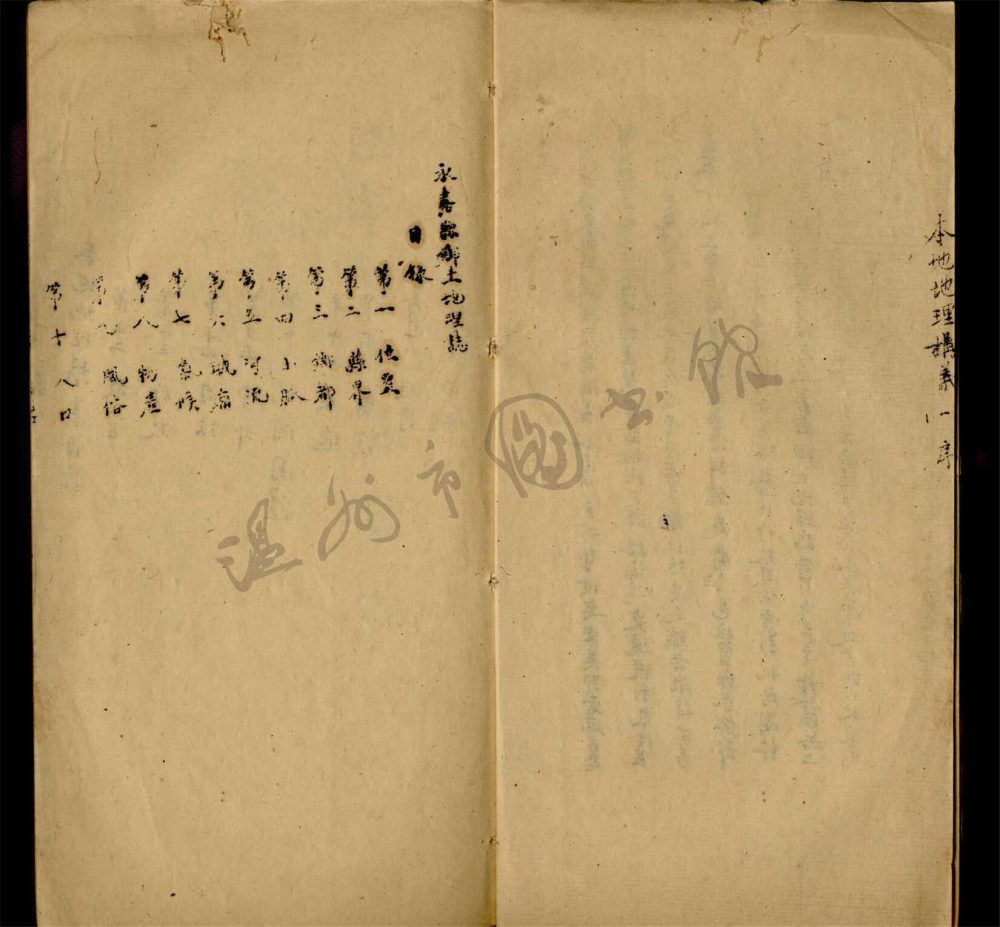 本地地理講義 一 序
永嘉縣鄉土地理誌
目錄
第一 位置
第二 縣界
第三 鄉都
第四 山脈
第五 河流
第六 城廂
第七 氣候
第八 物產
第九 風俗
第十 人口
溫州市圖书館